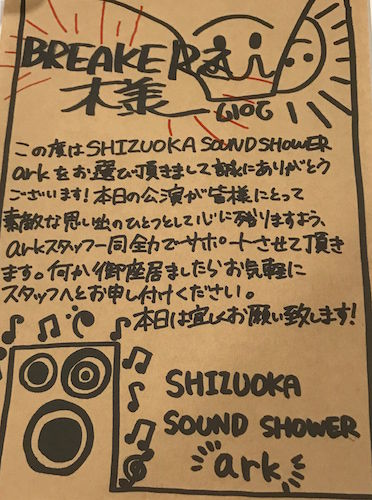 BREAKERZ
様
この度はSHIZUOKA SOUND SHOWER
arkをお選び頂きまして誠にありがとう
ございます！本日の公演が皆様にとって
素敵な思い出のひとつとして心に残りますよう、
arkスタッフ一同全力でサポートさせて頂き
ます。何か御座居ましたらお気軽に
スタッフへとお申し付けください。
本日は宜しくお願い致します！
SHIZUOKA
SOUND SHOWER
ark